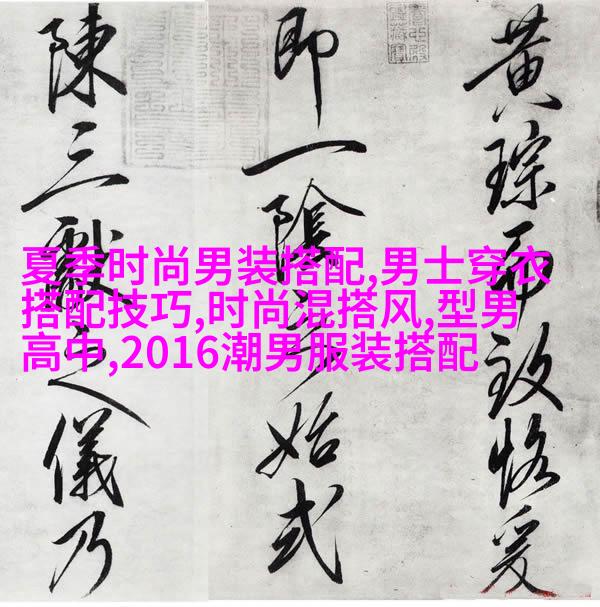 夏季时尚男装搭配,男士穿衣
搭配技巧,时尚混搭风,型男
高中,2016潮男服装搭配
黄琮而致恪爰
即一陰之始式
陳三獻之儀乃